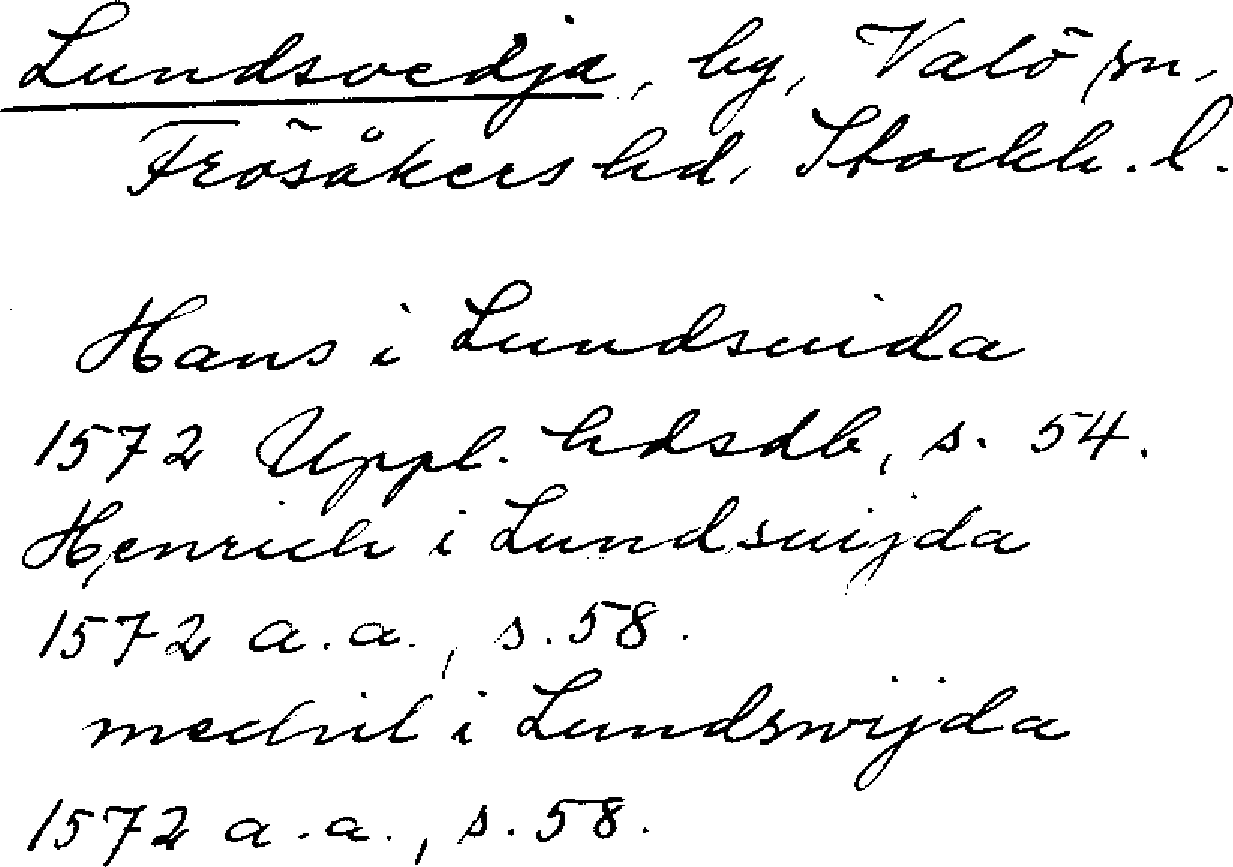 Lundsvedja, by, Valö sn,
Frösåkers hd, Stockh. l.
Hans i Lundsuida
1572 Uppl. hdsdb, s. 54.
Henrich i Lundsuijda
1572 a.a., s. 58.
mechil i Lundswijda
1572 a.a., s. 58.